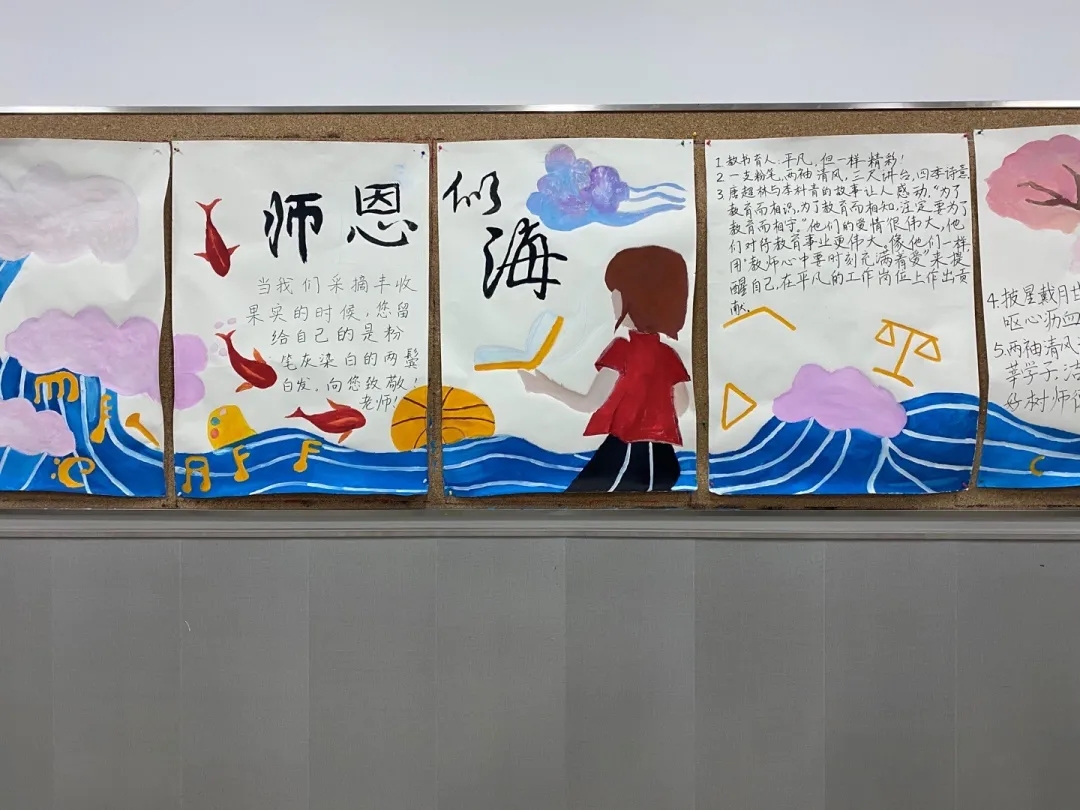 师恩
似
海
当我们采摘丰收
果实的时候,您留
给自己的是粉
笔灰染白的两鬓
白发。向您致敬!
老师!
1.教书育人.平凡,但一样精彩!
2.一支粉笔,两袖清风,三尺讲台,四季诗意
3.唐超林与李朴青的故事让人感动,“为了
教育而相识,为了教育而相知,注定要为了
教育而相守。”他们的爱情很伟大,他
们对待教育事业更伟大。像他们一样,
用“教师心中要时刻充满着爱”来提
醒自己,在平凡的工作岗位上作出贡
献。
4.披星戴月
呕心沥血
5.两袖清风
莘学子
好树师